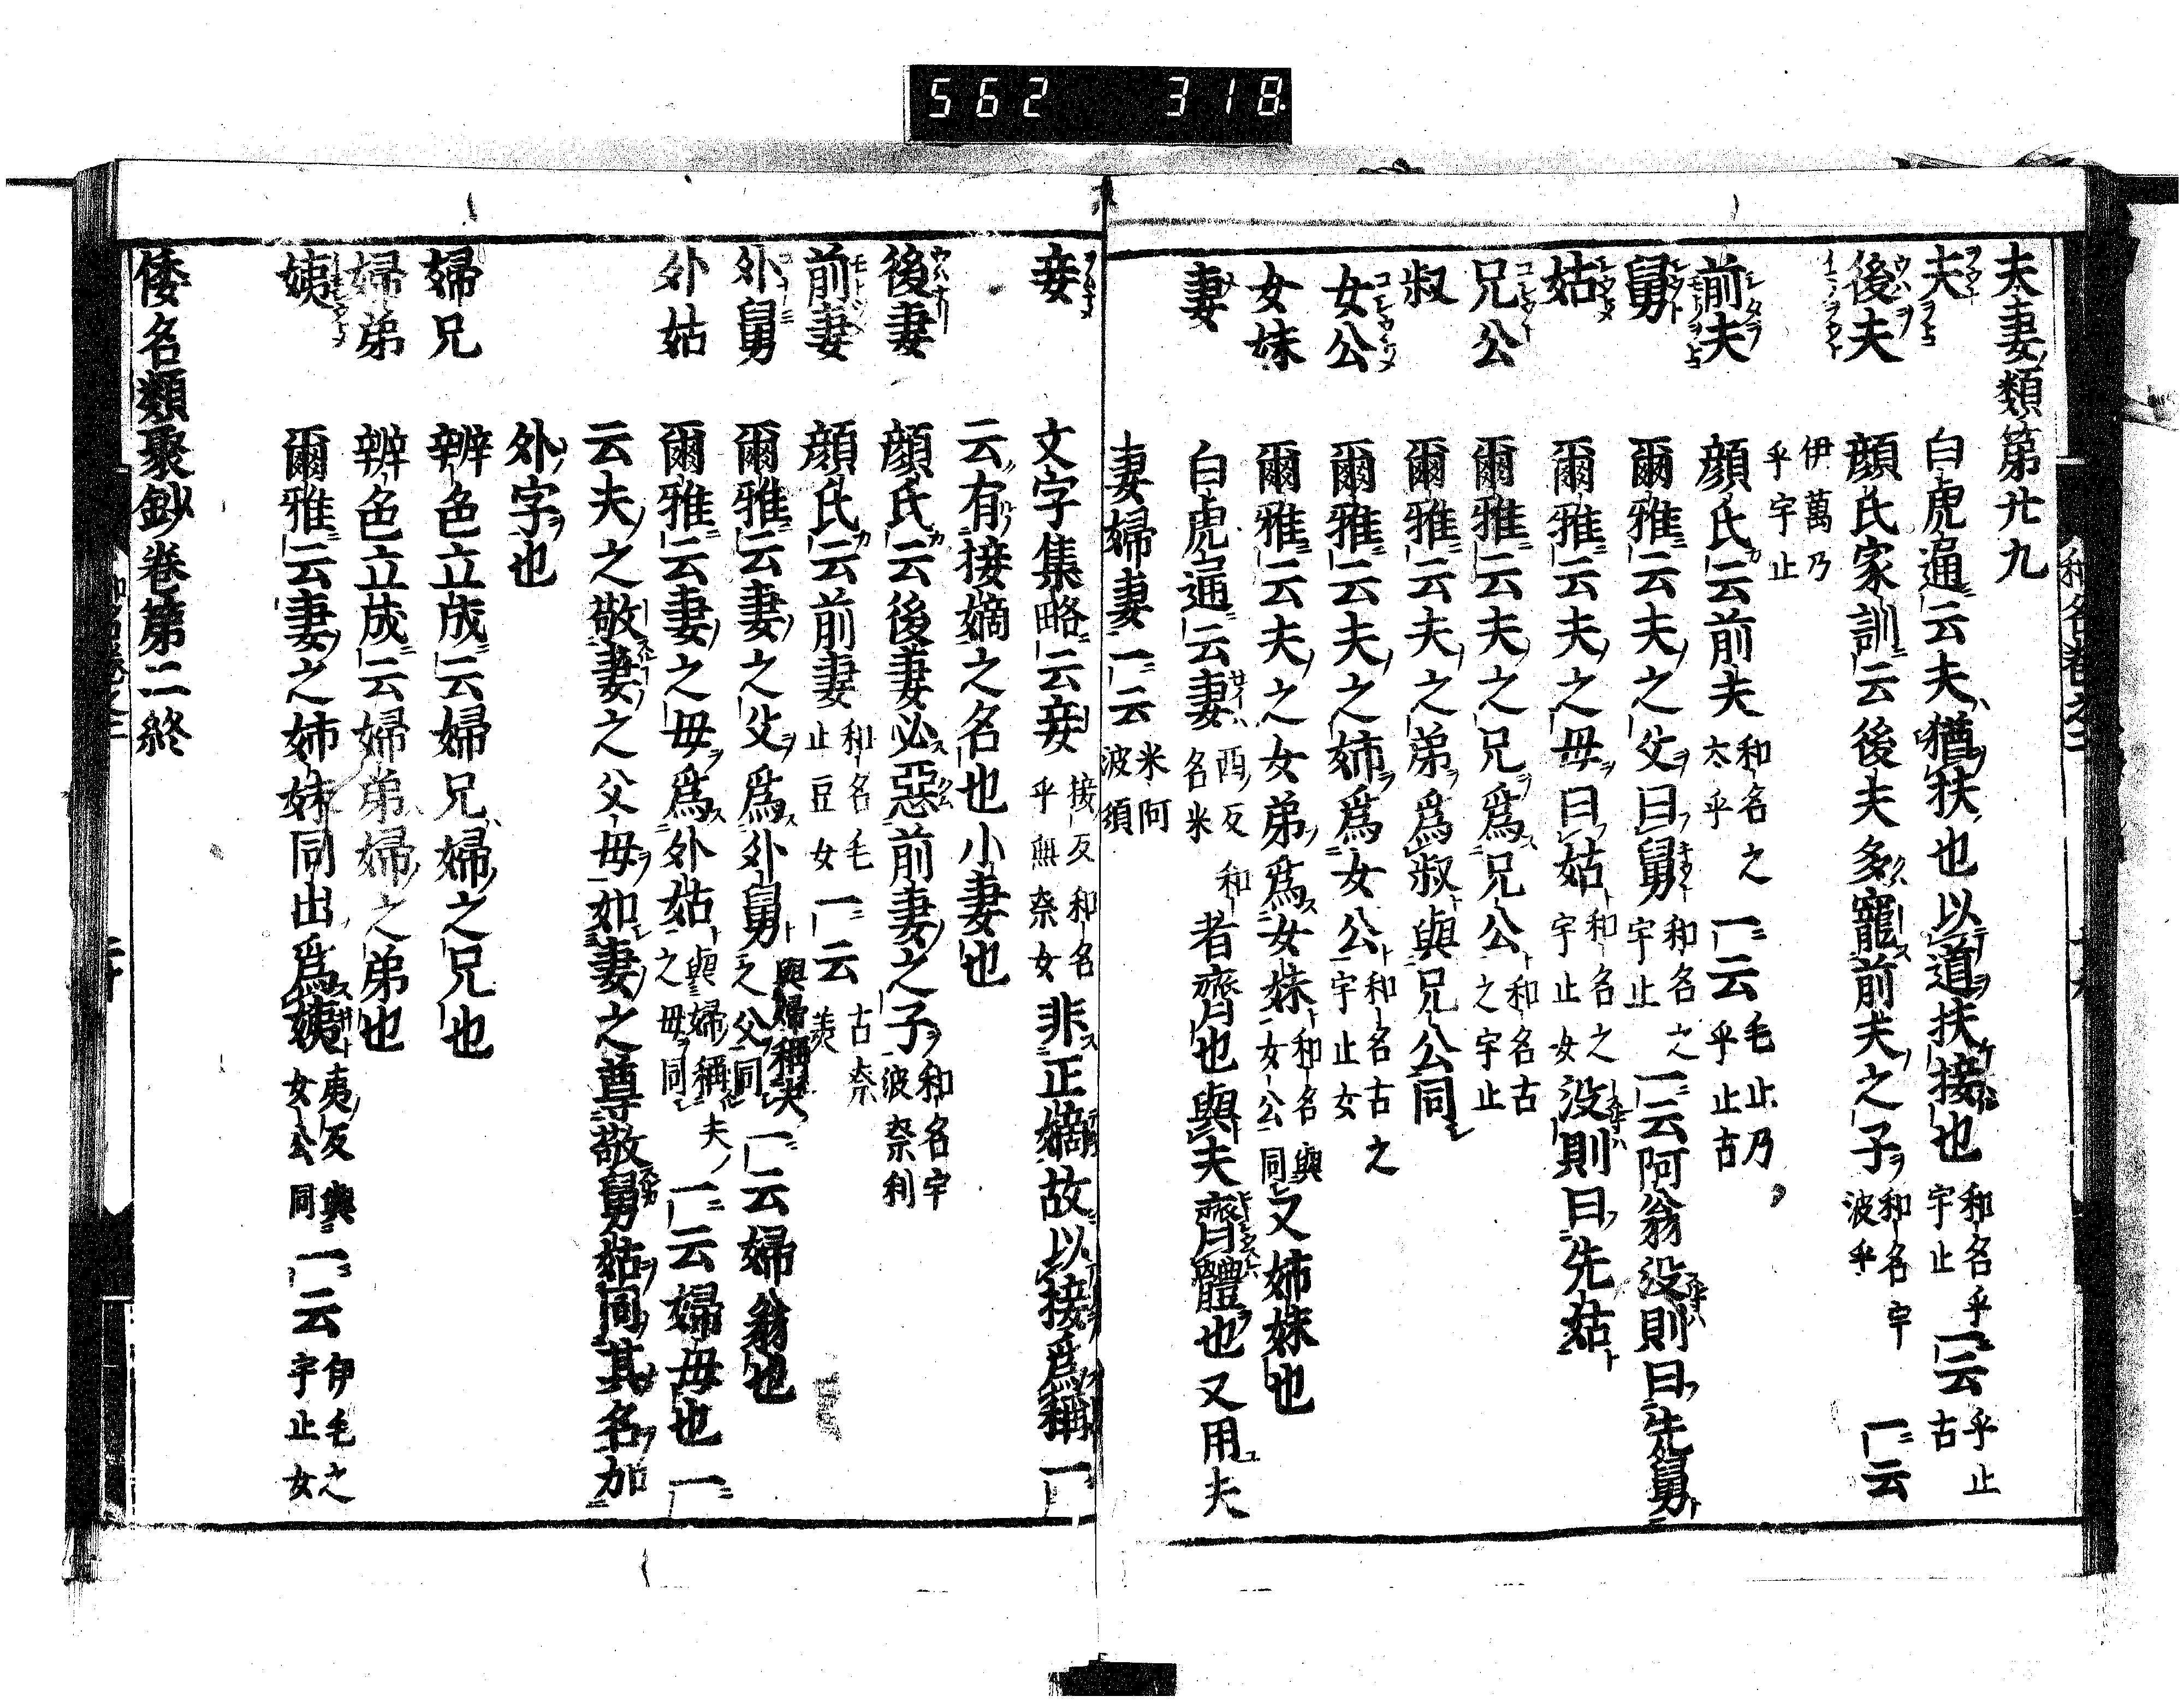 562 318
夫妻類第廿九
夫 白虎通云夫猶扶也以道扶接也 和名乎宇止 一云乎止古
後夫 顔氏家訓云後夫多寵前夫之子 和名宇波乎 一云
伊萬乃乎宇止
前夫 顔氏云前夫 和名之太乎 一云毛止乃乎止古
舅 爾雅云夫之父曰舅 和名之宇止 一云阿翁没則曰先舅
姑 爾雅云夫之母曰姑 和名之宇止女 没則曰先姑
兄公 爾雅云夫之兄爲兄公 和名古之宇止
叔 爾雅云夫之弟爲叔與兄公同
女公 爾雅云夫之姉爲女公 和名古之宇止女
女妹 爾雅云夫之女弟爲女妹 和名與女公同 又姉妹也
妻 白虎通云妻 西反和名米 者齊也與夫齊體也又用夫
妻婦妻一云 米阿波須
妾 文字集略云妾 接反和名乎無奈女 非正嫡故以接爲稱一
云有接嫡之名也小妻也
後妻 顔氏云後妻必惡前妻之子 和名宇波奈利
前妻 顔氏云前妻 和名毛止豆女 一云 古奈美
外舅 爾雅云妻之父爲外舅 與婦稱夫之父同 一云婦翁也
外姑 爾雅云妻之母爲外姑 與婦稱夫之母同 一云婦母也一
云夫之敬妻之父母如妻之尊敬舅姑同其名加
外字也
婦兄 辨色立成云婦兄婦之兄也
婦弟 辨色立成云婦弟婦之弟也
姨 爾雅云妻之姉妹同出爲姨 夷反與女公同 一云 伊毛之宇止女
倭名類聚鈔卷第二終